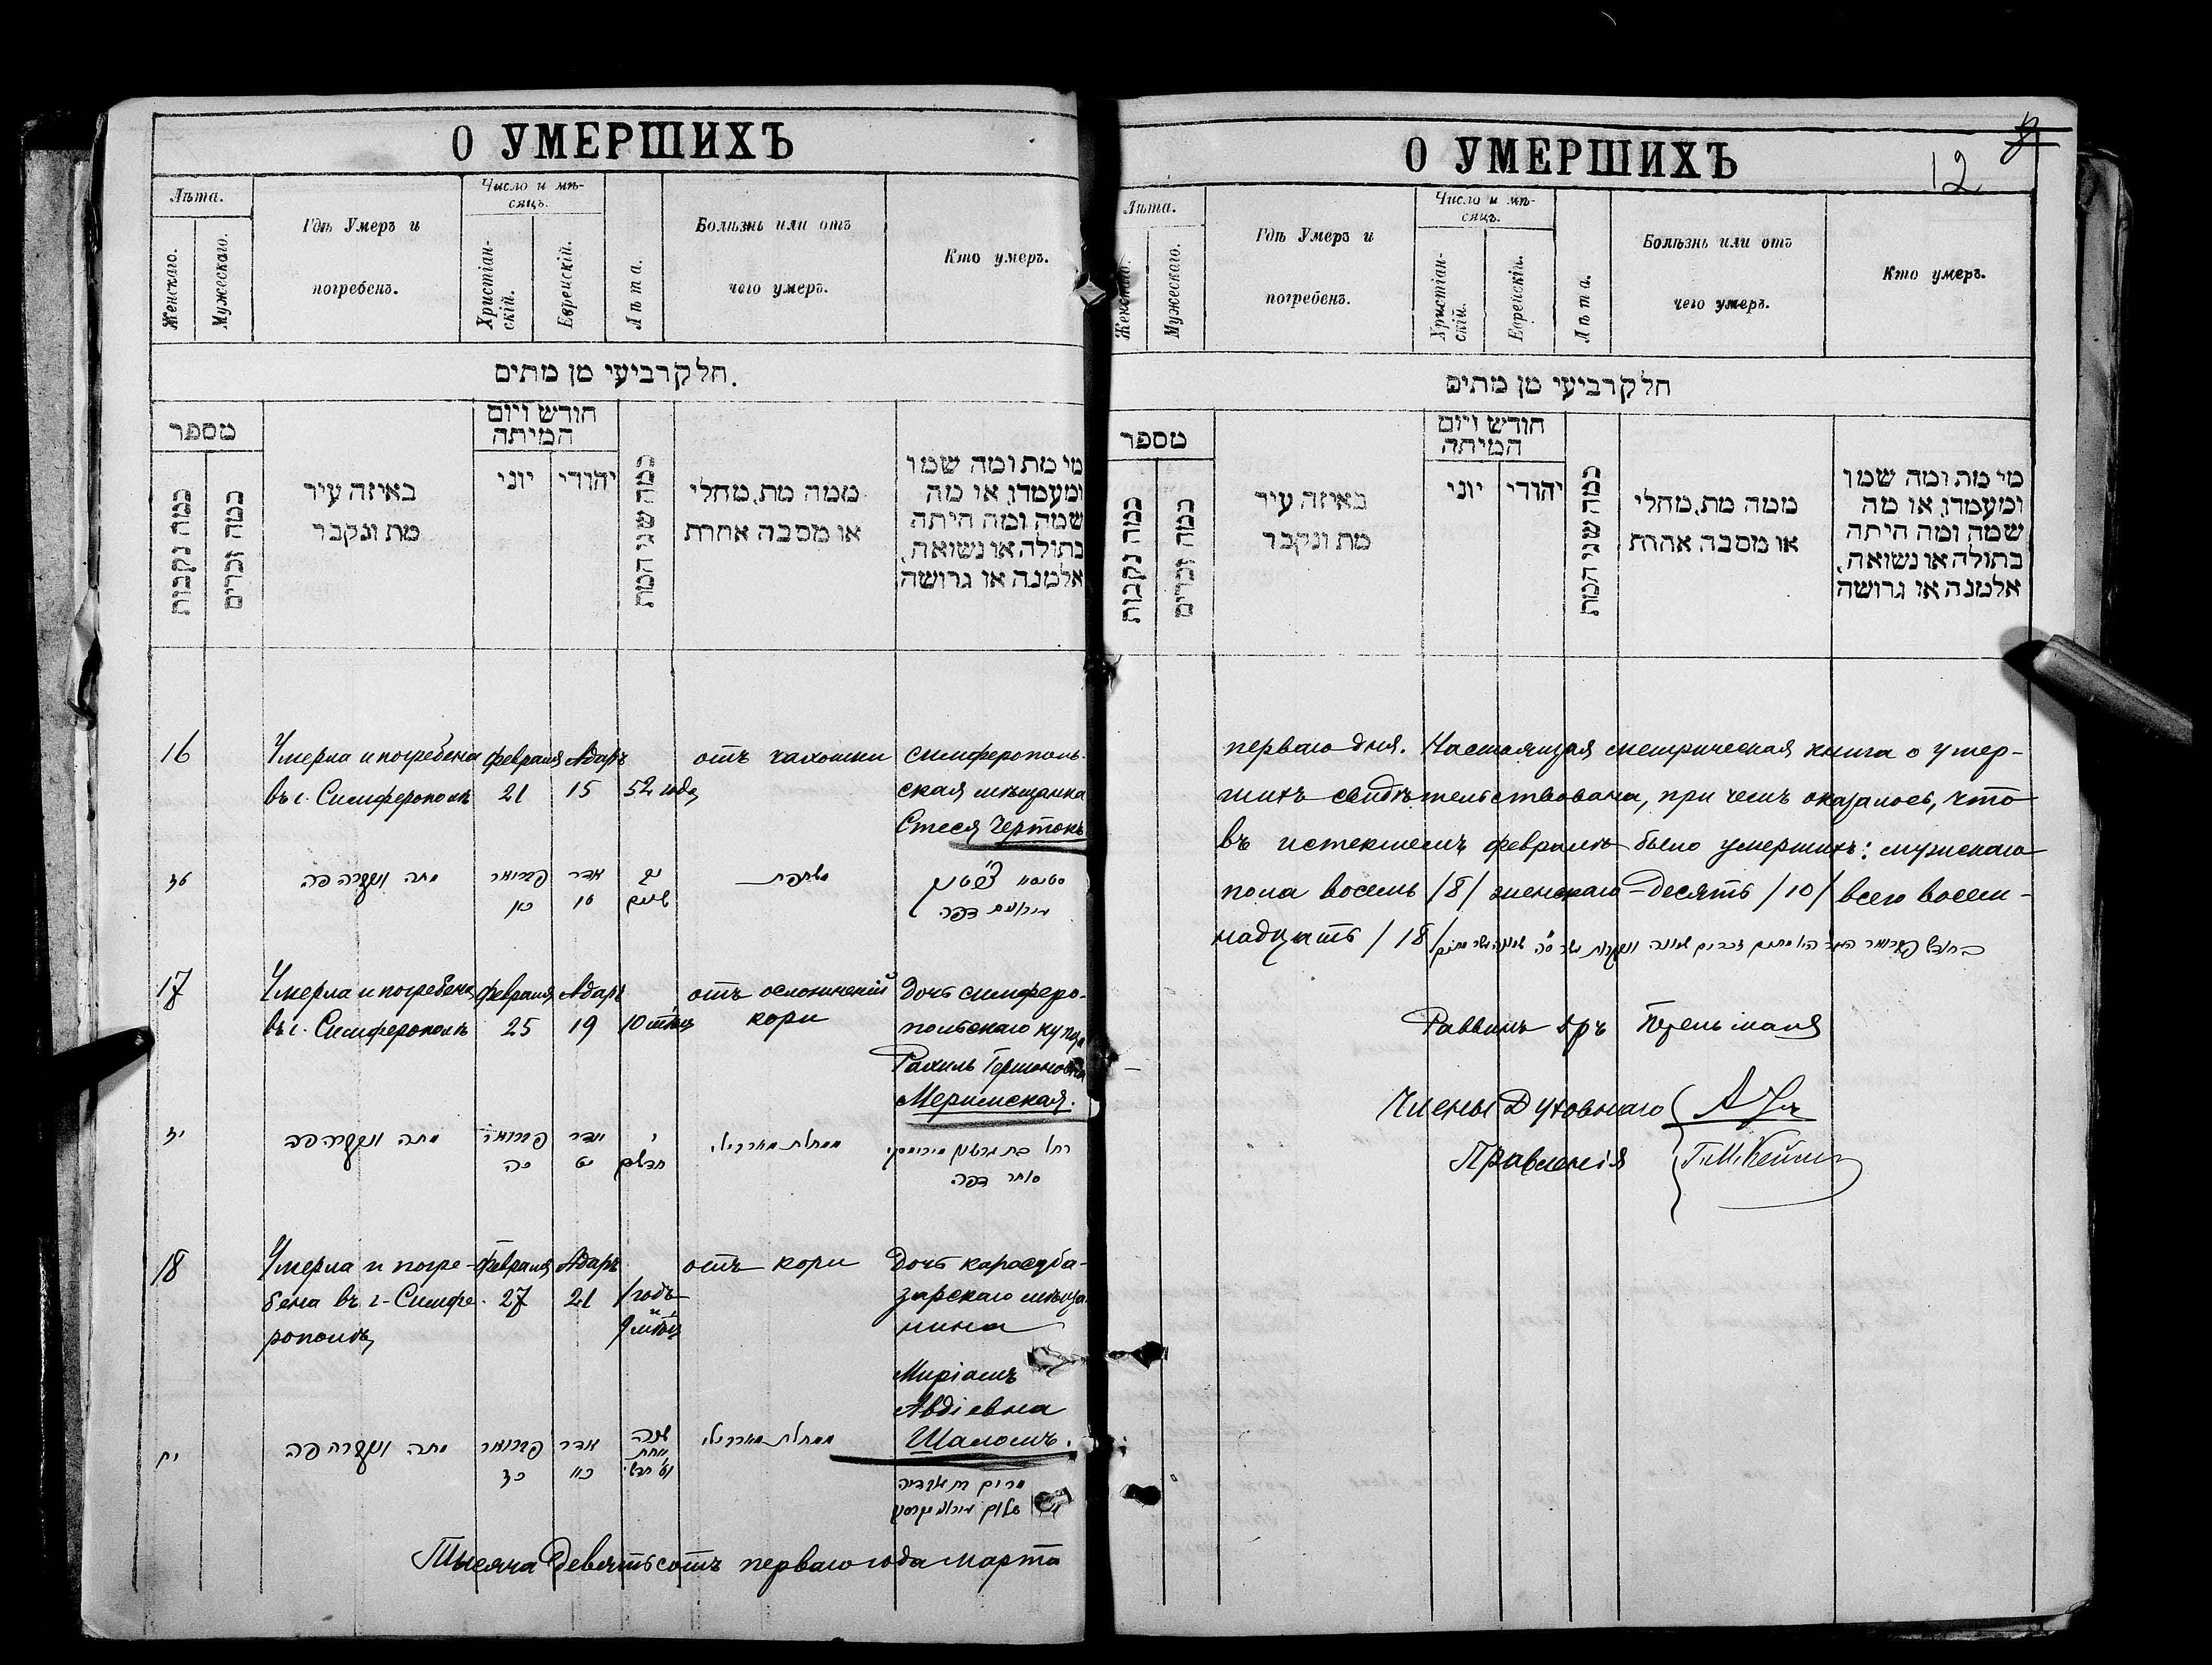 О УМЕРШИХЪ
Лѣта.
Женскаго.
Мужескаго.
Гдѣ Умеръ и
погребенъ.
Число и мѣ-
сяцъ.
Христіан-
скій.
Еврейскій.
Лѣта.
Болѣзнь или отъ
чего умеръ.
Кто умеръ.
חלק רביעי מן מתים.
מספר
כמה נקבות
כמה זכרים
באיזה עיר
מת ונקבר
חודש ויום
המיתה
יוני
יהודי
כמה שני המת
ממה מת, מחלי
או מסבה אחרת
מי מת ומה שמו
ומעמדו, או מה
שמה ומה היתה
בתולה או נשואה,
אלמנה או גרושה
16
Умерла и погребена
въ г. Симферополѣ
февраля
21
Адаръ
15
52 года
отъ чахотки
симферополь-
ская мѣщанка
Стеся Чертокъ
טז
מתה ונקברה פה
פברואר
כא
אדר
טו
נב
שנים
משחפת
17
Умерла и погребена
въ г. Симферополѣ
февраля
25
Адаръ
19
10 мѣсц
отъ осложненій
кори
Дочь симферо-
польскаго купца
Рахиль Гершоновна
Меримская.
יז
מתה ונקברה פה
פברואר
כה
אדר
יט
י
חדשים
רחל בת גרשון מירימסקי
סוחר דפה
18
Умерла и погре-
бена въ г. Симфе-
рополѣ
февраля
27
Адаръ
21
1 годъ
и
9 мѣсц
отъ кори
Дочь карасуба-
зарскаго мѣща-
нина
Миріамъ
Авдіевна
Шаломъ.
יח
מתה ונקברה פה
פברואר
כז
אדר
כא
שנה
אחת
וט׳ חדשי׳
מרים בת עבדיה
שלום
Тысяча девятьсотъ перваго года марта
О УМЕРШИХЪ
12
Лѣта.
Женскаго.
Мужескаго.
Гдѣ Умеръ и
погребенъ.
Число и мѣ-
сяцъ.
Христіан-
скій.
Еврейскій.
Лѣта.
Болѣзнь или отъ
чего умеръ.
Кто умеръ.
חלק רביעי מן מתים
מספר
כמה נקבות
כמה זכרים
באיזה עיר
מת ונקבר
חודש ויום
המיתה
יוני
יהודי
כמה שני המת
ממה מת, מחלי
או מסבה אחרת
מי מת ומה שמו
ומעמדו, או מה
שמה ומה היתה
בתולה או נשואה,
אלמנה או גרושה
перваго дня. Настоящая метрическая книга о умер-
шихъ свидѣтельствована, при чемъ оказалось, что
въ истекшемъ февралѣ было умершихъ: мужскаго
пола восемь /8/ женскаго - десять /10/ всего восем-
надцать /18/ בחודש פברואר העבר היו מתים זכרים שמונה ונקבות עשר
Раввинъ д-ръ Перельманъ
Члены Духовнаго
Правленія